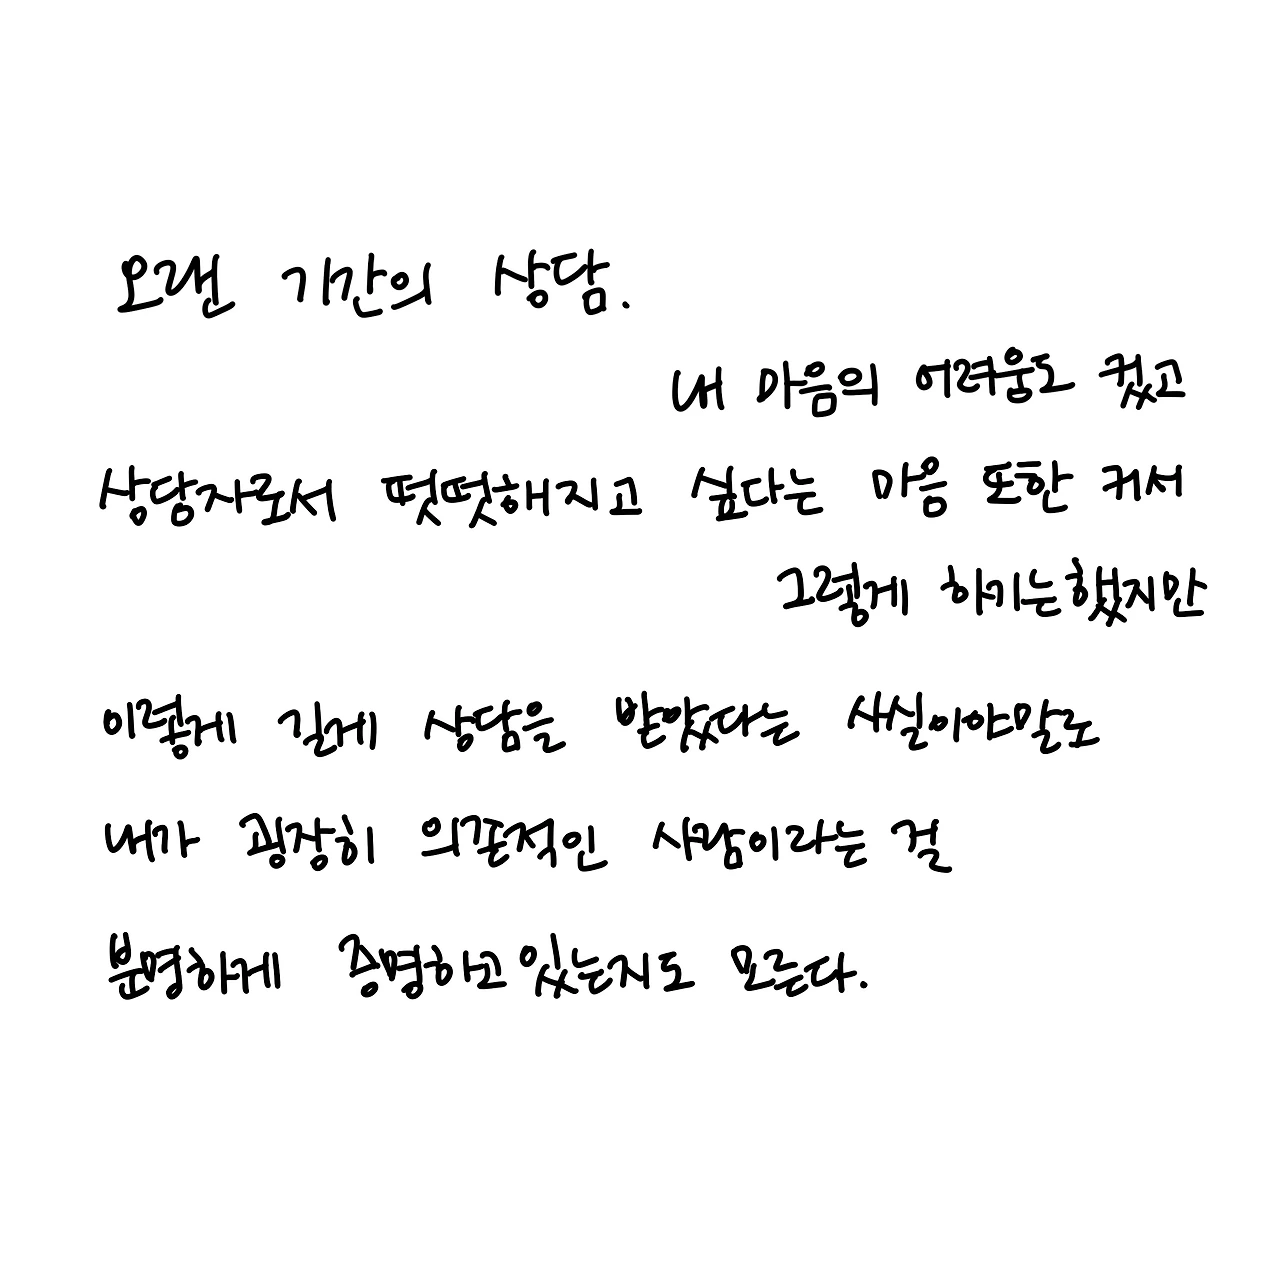 오랜 기간의 상담.
내 마음의 어려움도 컸고
상담자로서 떳떳해지고 싶다는 마음 또한 커서
그렇게 하기는했지만
이렇게 길게 상담을 받았다는 사실이야말로
내가 굉장히 의존적인 사람이라는 걸
분명하게 증명하고있는지도 모른다.